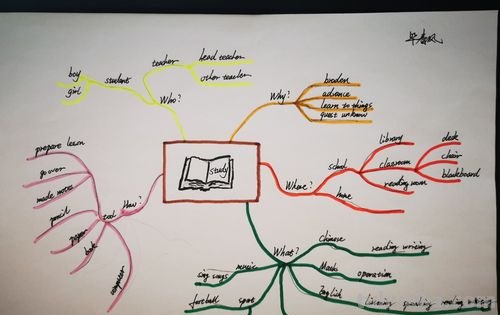 study
Who?
student
boy
girl
teacher
head teacher
other teacher
Why?
broaden
learn to things
quest unknow
Where?
school
library
classroom
desk
chair
blackboard
reading room
home
What?
Chinese
reading writing
Math
operation
English
listening speaking reading writing
music
sing songs
football
spot
How?
tool
prepare lesson
go over
made notes
pencil
paper
book